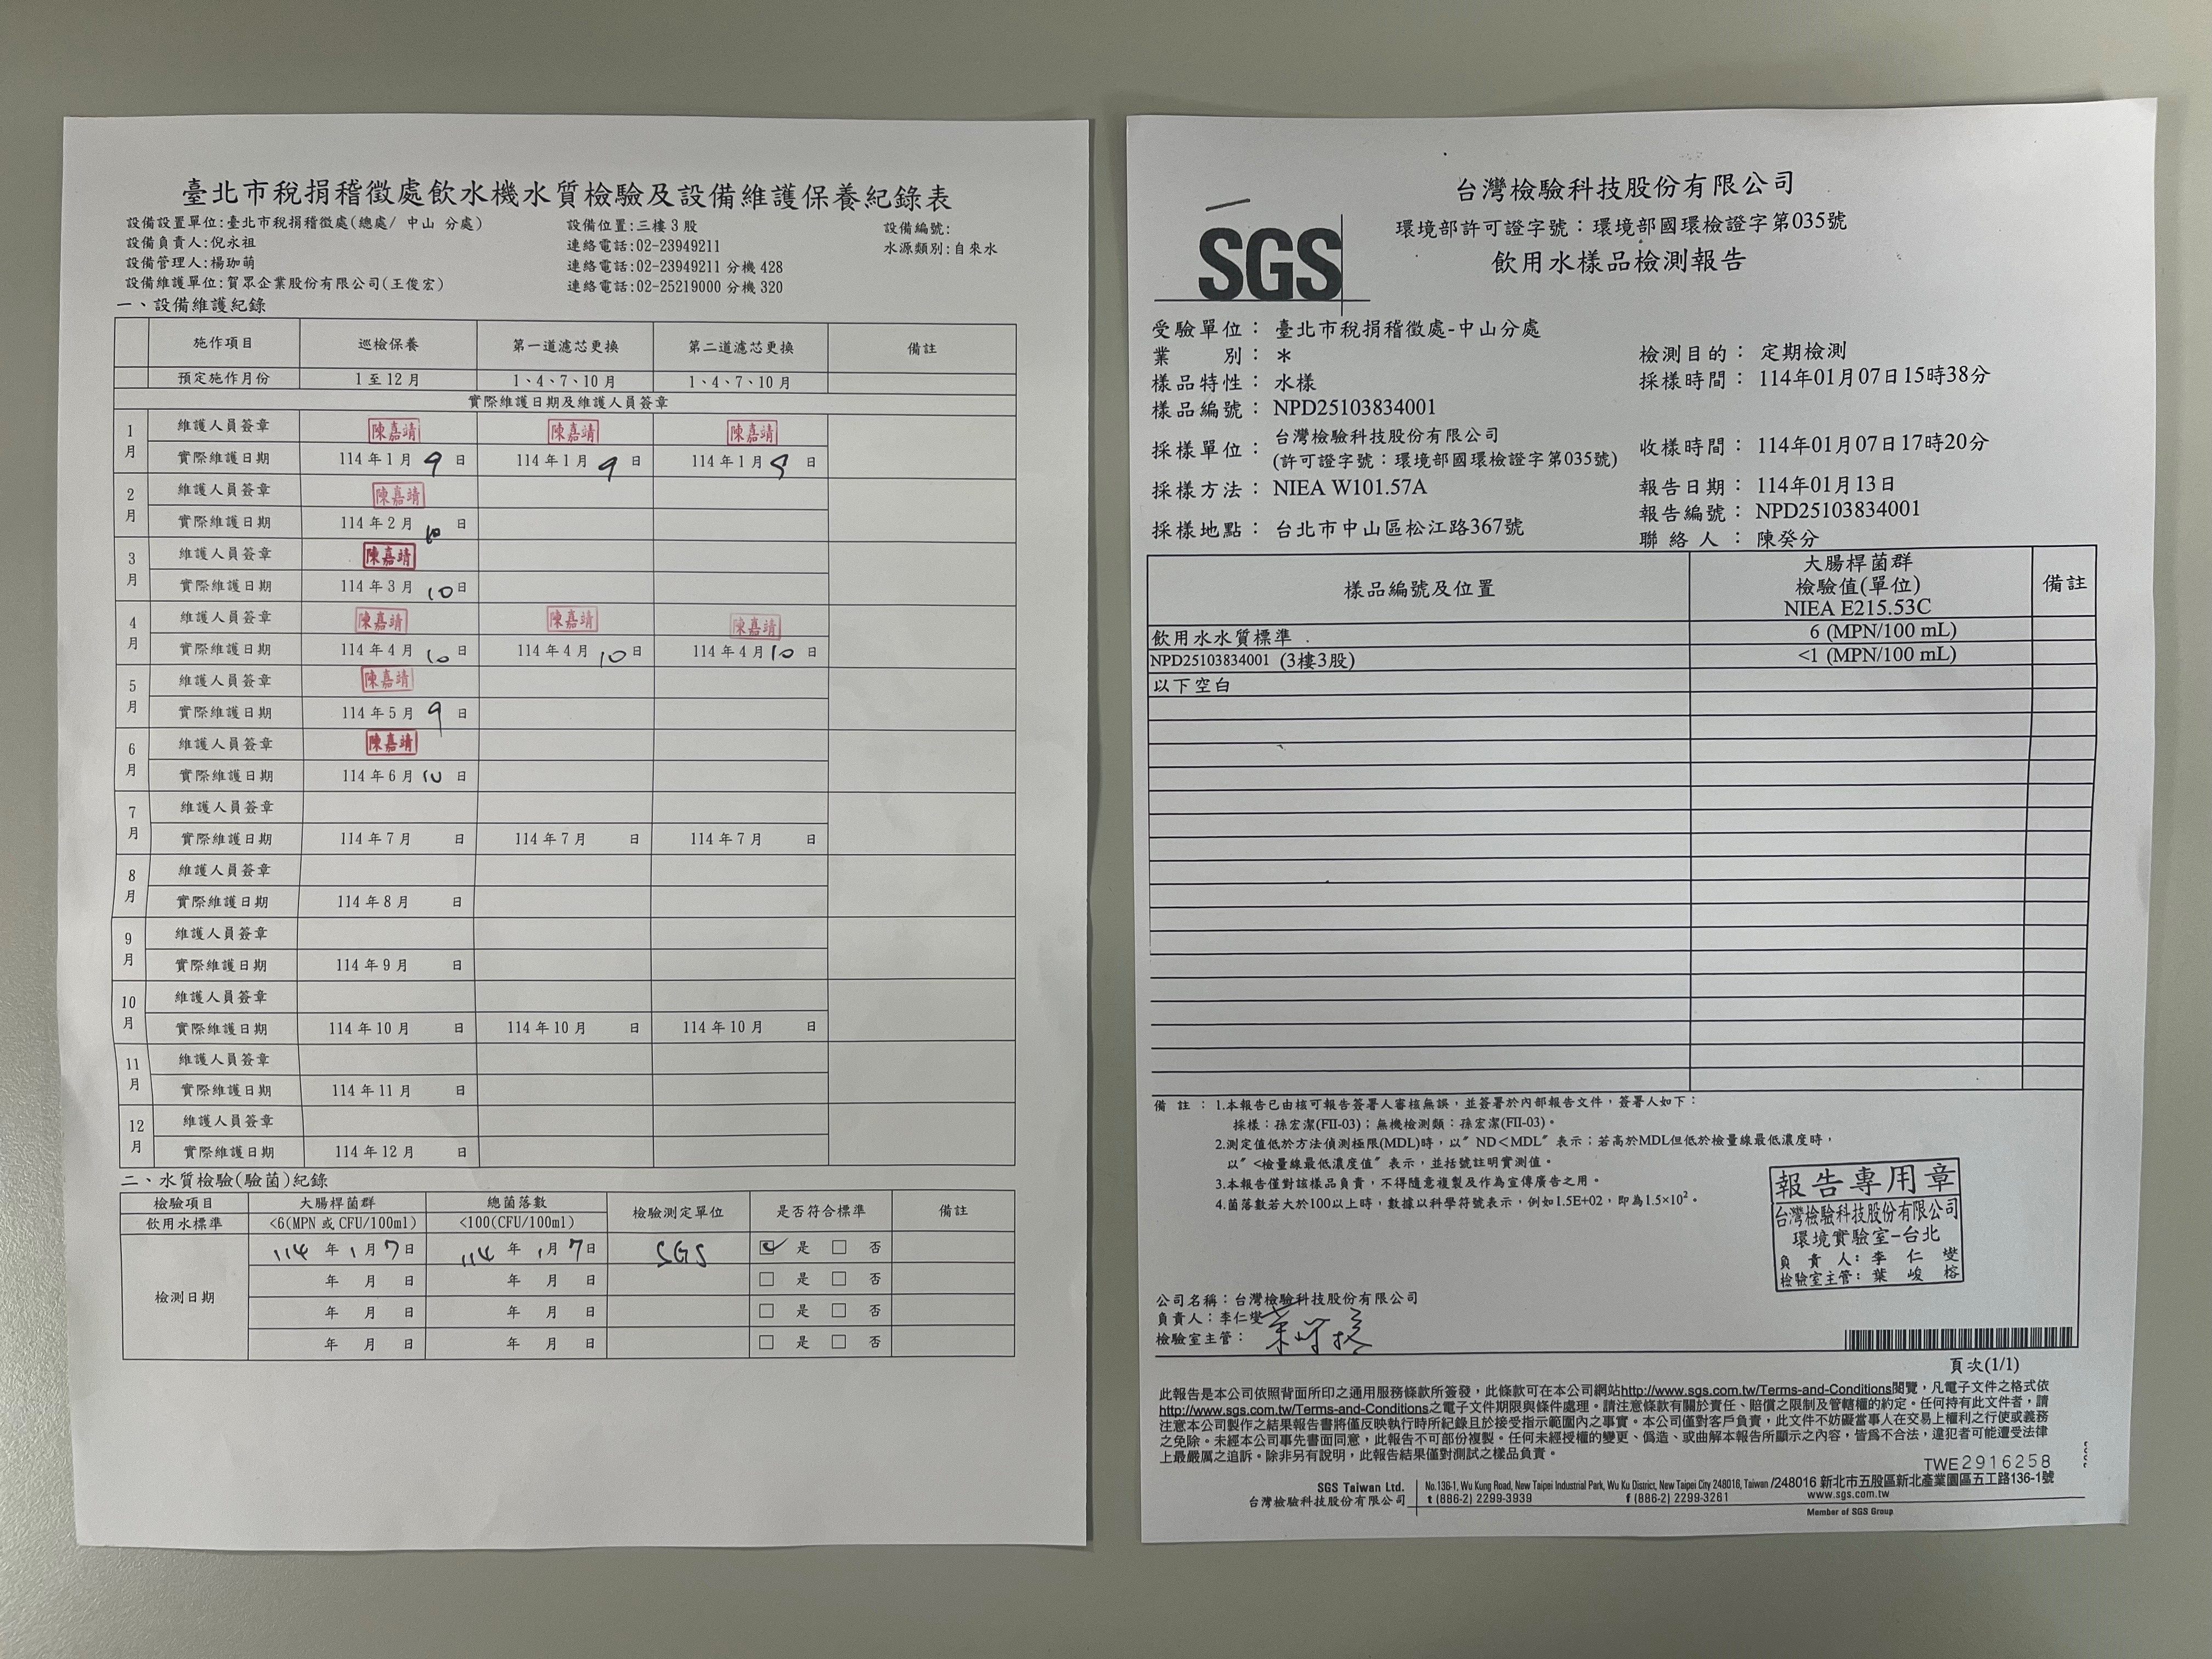 臺北市稅捐稽徵處飲水機水質檢驗及設備維護保養紀錄表
設備設置單位:臺北市稅捐稽徵處(總處/ 中山 分處) 設備位置:三樓3股 設備編號:
設備負責人:倪永祖 連絡電話:02-23949211 水源類別:自來水
設備管理人:楊珈萌 連絡電話:02-23949211 分機 428
設備維護單位:賀眾企業股份有限公司(王俊宏) 連絡電話:02-25219000 分機 320
一、設備維護紀錄
施作項目 巡檢保養 第一道濾芯更換 第二道濾芯更換 備註
預定施作月份 1 至 12 月 1、4、7、10 月 1、4、7、10 月
實際維護日期及維護人員簽章
1月 維護人員簽章 陳嘉靖 陳嘉靖 陳嘉靖
實際維護日期 114 年 1 月 9 日 114 年 1 月 9 日 114 年 1 月 9 日
2月 維護人員簽章 陳嘉靖
實際維護日期 114 年 2 月 10 日
3月 維護人員簽章 陳嘉靖
實際維護日期 114 年 3 月 10 日
4月 維護人員簽章 陳嘉靖 陳嘉靖 陳嘉靖
實際維護日期 114 年 4 月 10 日 114 年 4 月 10 日 114 年 4 月 10 日
5月 維護人員簽章 陳嘉靖
實際維護日期 114 年 5 月 9 日
6月 維護人員簽章 陳嘉靖
實際維護日期 114 年 6 月 10 日
7月 維護人員簽章
實際維護日期 114 年 7 月 日 114 年 7 月 日 114 年 7 月 日
8月 維護人員簽章
實際維護日期 114 年 8 月 日
9月 維護人員簽章
實際維護日期 114 年 9 月 日
10月 維護人員簽章
實際維護日期 114 年 10 月 日 114 年 10 月 日 114 年 10 月 日
11月 維護人員簽章
實際維護日期 114 年 11 月 日
12月 維護人員簽章
實際維護日期 114 年 12 月 日
二、水質檢驗(驗菌)紀錄
檢驗項目 大腸桿菌群 總菌落數 檢驗測定單位 是否符合標準 備註
飲用水標準 <6(MPN 或 CFU/100ml) <100(CFU/100ml)
檢測日期 114 年 1 月 7 日 114 年 1 月 7 日 SGS ☑ 是 □ 否
年 月 日 年 月 日 □ 是 □ 否
年 月 日 年 月 日 □ 是 □ 否
年 月 日 年 月 日 □ 是 □ 否
SGS
台灣檢驗科技股份有限公司
環境部許可證字號：環境部國環檢證字第035號
飲用水樣品檢測報告
受驗單位： 臺北市稅捐稽徵處-中山分處
業 別： * 檢測目的： 定期檢測
樣品特性： 水樣 採樣時間： 114年01月07日15時38分
樣品編號： NPD25103834001
採樣單位： 台灣檢驗科技股份有限公司 收樣時間： 114年01月07日17時20分
(許可證字號：環境部國環檢證字第035號)
採樣方法： NIEA W101.57A 報告日期： 114年01月13日
報告編號： NPD25103834001
採樣地點： 台北市中山區松江路367號 聯絡人： 陳癸分
樣品編號及位置 大腸桿菌群 檢驗值(單位) NIEA E215.53C 備註
飲用水水質標準 6 (MPN/100 mL)
NPD25103834001 (3樓3股) <1 (MPN/100 mL)
以下空白
備 註：1.本報告已由核可報告簽署人審核無誤，並簽署於內部報告文件，簽署人如下：
採樣：孫宏潔(FII-03)；無機檢測類：孫宏潔(FII-03)。
2.測定值低於方法偵測極限(MDL)時，以"ND<MDL"表示；若高於MDL但低於檢量線最低濃度時，
以"<檢量線最低濃度值"表示，並括號註明實測值。
3.本報告僅對該樣品負責，不得隨意複製及作為宣傳廣告之用。
4.菌落數若大於100以上時，數據以科學符號表示，例如1.5E+02，即為1.5×10²。
報告專用章
台灣檢驗科技股份有限公司
環境實驗室-台北
負責人：李仁燮
檢驗室主管：葉峻榕
公司名稱：台灣檢驗科技股份有限公司
負責人：李仁燮
檢驗室主管：
頁次(1/1)
此報告是本公司依照背面所印之通用服務條款所簽發，此條款可在本公司網站http://www.sgs.com.tw/Terms-and-Conditions閱覽，凡電子文件之格式依
http://www.sgs.com.tw/Terms-and-Conditions之電子文件期限與條件處理。請注意條款有關於責任、賠償之限制及管轄權的約定。任何持有此文件者，請
注意本公司製作之結果報告書將僅反映執行時所紀錄且於接受指示範圍內之事實。本公司僅對客戶負責，此文件不妨礙當事人在交易上權利之行使或義務
之免除。未經本公司事先書面同意，此報告不可部份複製。任何未經授權的變更、偽造、或曲解本報告所顯示之內容，皆為不合法，違犯者可能遭受法律
上最嚴厲之追訴。除非另有說明，此報告結果僅對測試之樣品負責。
TWE2916258
SGS Taiwan Ltd. No.136-1, Wu Kung Road, New Taipei Industrial Park, Wu Ku District, New Taipei City 248016, Taiwan /248016 新北市五股區新北產業園區五工路136-1號
台灣檢驗科技股份有限公司 t (886-2) 2299-3939 f (886-2) 2299-3261 www.sgs.com.tw
Member of SGS Group